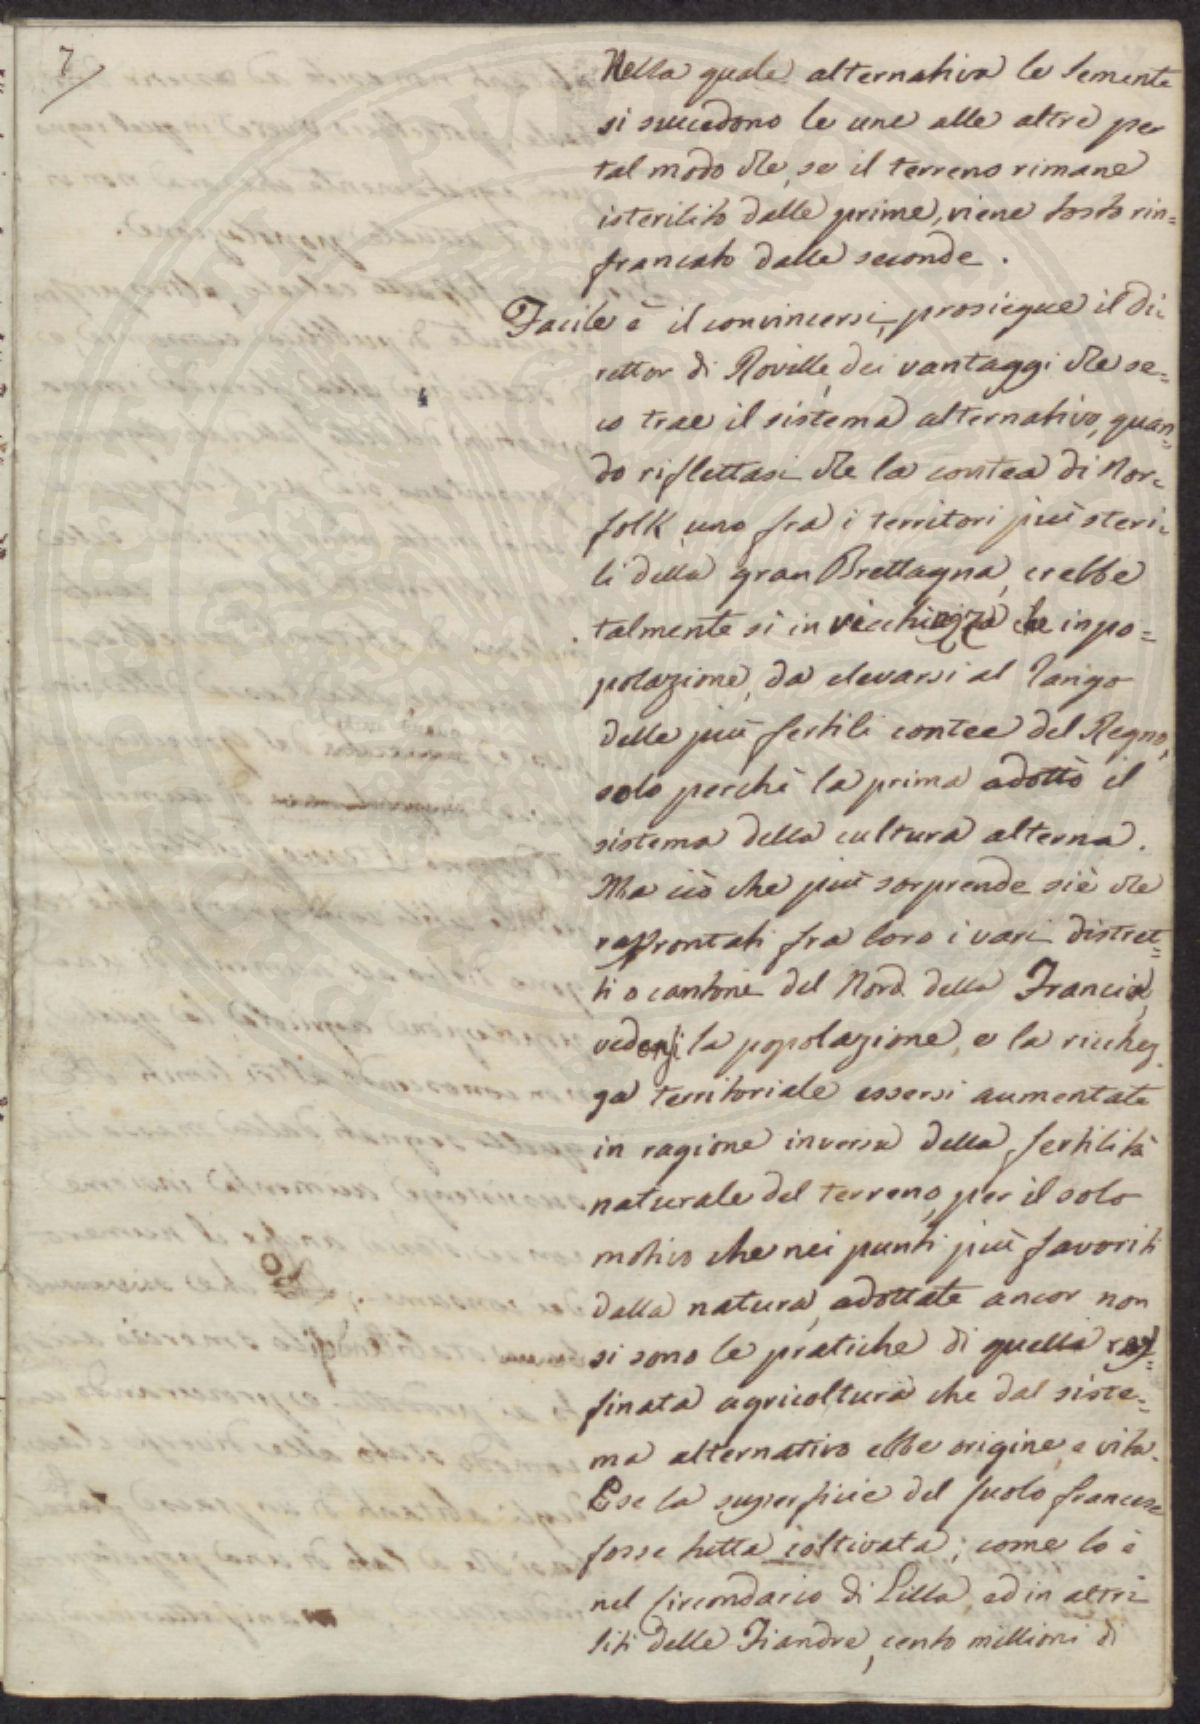 7
Nella quale alternativa le semente
si succedono le une alle altre per
tal modo che, se il terreno rimane
isterilito dalle prime, viene tosto rin=
francato dalle seconde.
Facile è il convincersi, prosiegue il di=
rettor di Roville, dei vantaggi che se=
co trae il sistema alternativo, quan=
do riflettasi che la contea di Nor=
folk, uno fra i territori più steri=
li della gran Brettagna, crebbe
talmente sì in ricchezza che in po=
polazione, da elevarsi al rango
delle più fertili contee del Regno,
solo perchè la prima adottò il
sistema della cultura alterna.
Ma ciò che più sorprende si è che
raffrontati fra loro i vari distret=
ti o cantoni del Nord della Francia,
vedonsi la popolazione, e la ricchez=
za territoriale essersi aumentate
in ragione inversa della fertilità
naturale del terreno, per il solo
motivo che nei punti più favoriti
dalla natura, adottate ancor non
si sono le pratiche di quella raf=
finata agricoltura che dal siste=
ma alternativo ebbe origine, e vita.
E se la superficie del suolo francese
fosse tutta coltivata, come lo è
nel Circondario di Lilla, ed in altri
siti delle Fiandre, cento millioni di